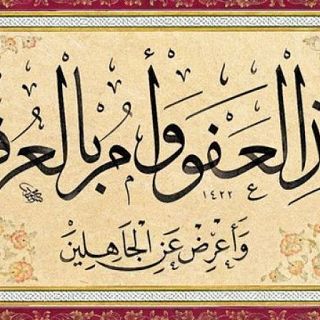 ذِ العَفوَ وَأمُر بِالعُرف
١٤٢٢
وَأَعْرِضْ عَنِ الْجَاهِلِينَ